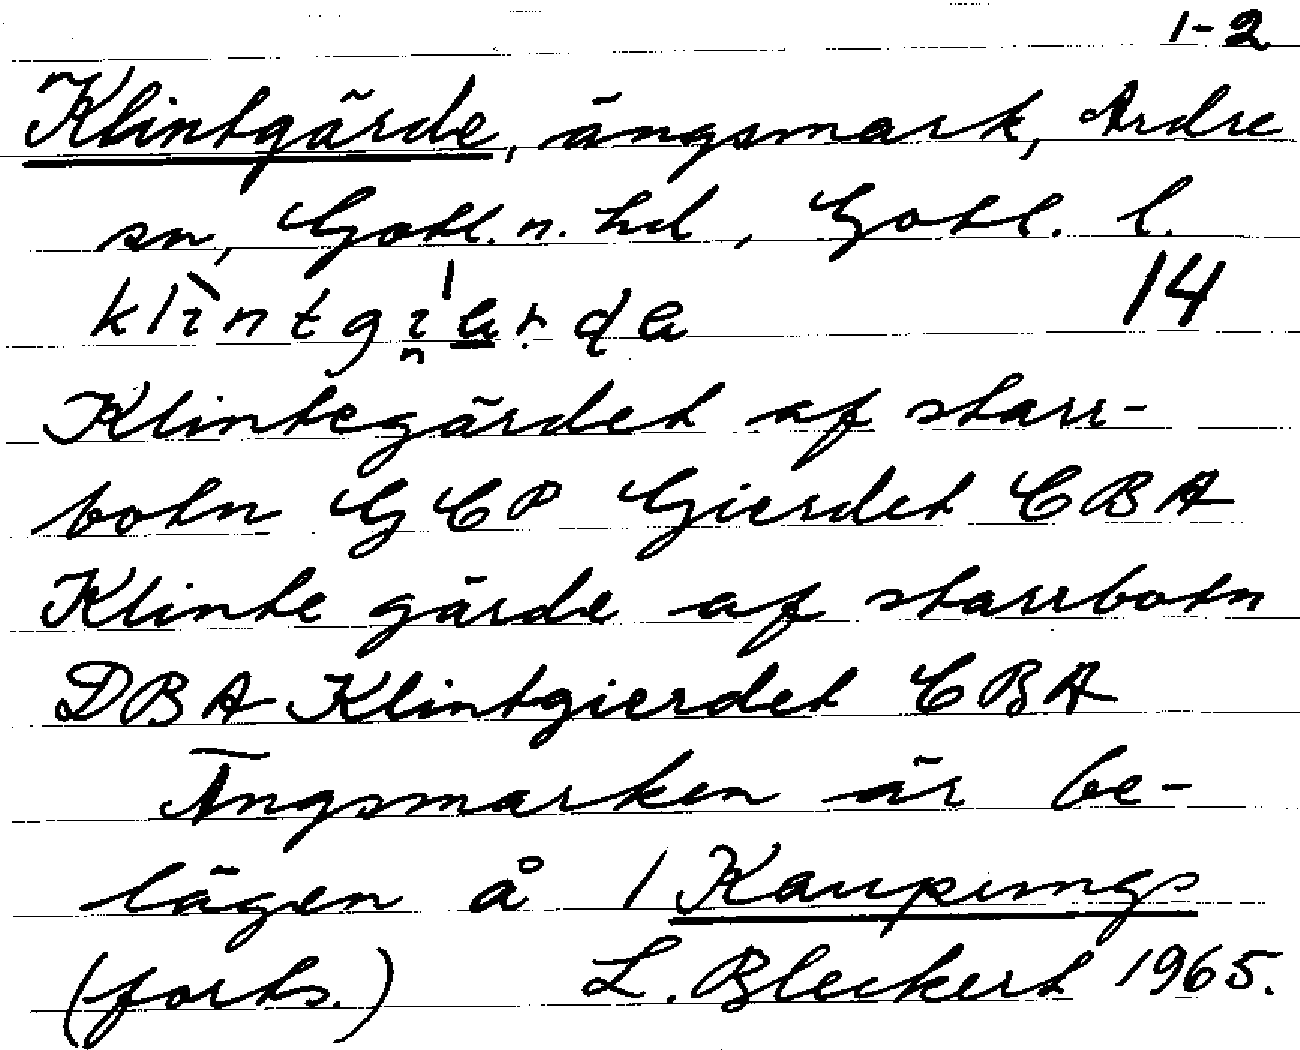 1-2
Klintgärde, ängsmark, Ardre
sn, Gotl. n. hd, Gotl. l.
14
Klintegärdet af starr-
botn GCP Gierdet CBA
Klinte gärde af starrbotn
DBA Klintgierdet CBA
Ängsmarken är be-
lägen å 1 Kaupungs
(forts.) L. Bleckert 1965.